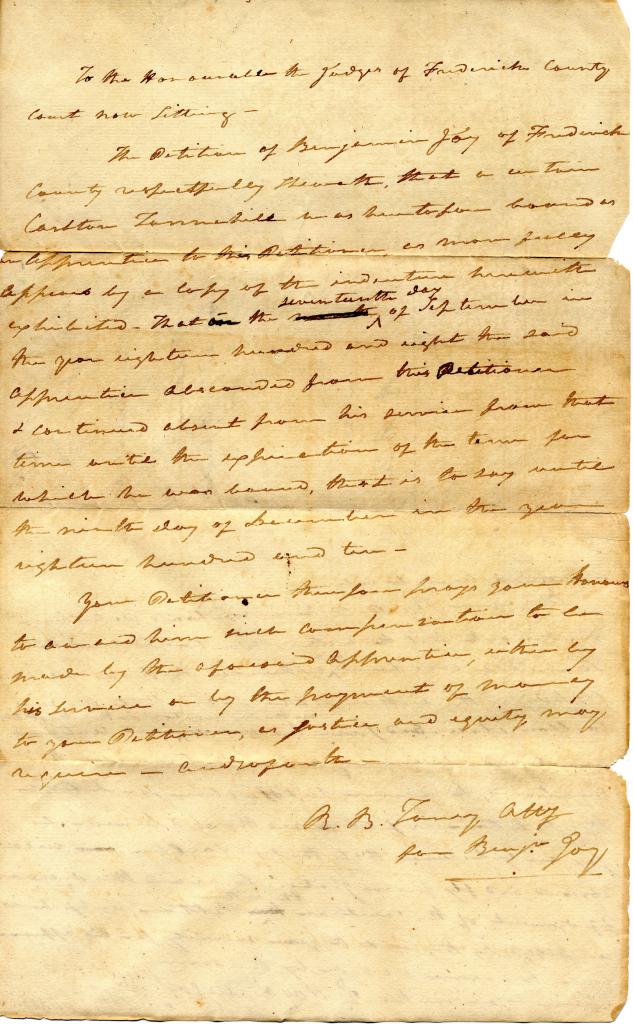 To the Honourable the Judges of Frederick County
Court now Sitting –
The Petition of Benjamin Joy of Frederick
County respectfully Sheweth, that a certain
Carlton Tannehill was heretofore bound as
an apprentice to his Petitioner, as more fully
appears by a Copy of the indenture herewith
exhibited – That on the seventeenth day of September in
the year eighteen hundred and eight the said
apprentice absconded from this Petitioner
& continued absent from his service from that
time until the expiration of the term for
which he was bound, that is to say until
the ninth day of December in the year
eighteen hundred and ten –
Your Petitioner therefore prays your Honours
to award him such compensation to be
made by the aforesaid apprentice, either by
his service or by the payment of money
to your Petitioner, as justice and equity may
require – and so forth –
R. B. Taney Atty
for Benjn Joy